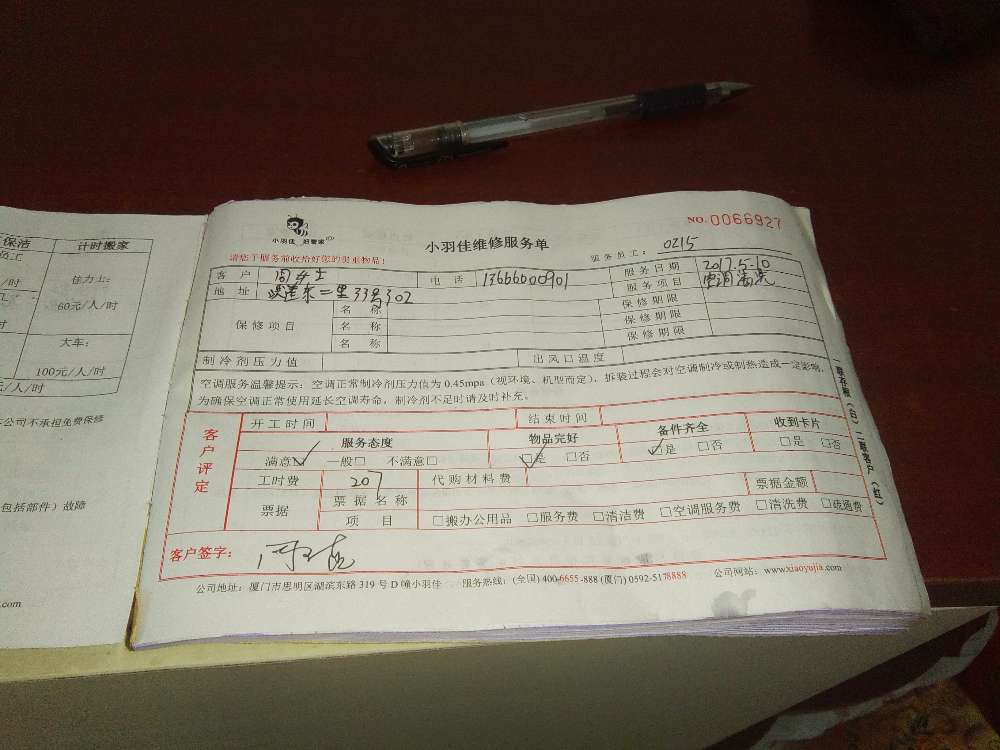 保洁
计时搬家
员工
/时
佳力士:
60元/人/时
大车:
100元/人/时
元/人/时
公司不承担免费保修
包括部件）故障
.com
小羽佳 好管家
NO.0066927
小羽佳维修服务单
请您于服务前收拾好您的贵重物品!
服务员工: 0215
客户 周女士 电话 13666000901 服务日期 2017.5-10
地址 33号302 服务项目 空调清洗
保修项目 名称 保修期限
名称 保修期限
名称 保修期限
制冷剂压力值 出风口温度
空调服务温馨提示: 空调正常制冷剂压力值为 0.45mpa（视环境、机型而定），拆装过程会对空调制冷或制热造成一定影响，
为确保空调正常使用延长空调寿命，制冷剂不足时请及时补充。
客户评定
开工时间 结束时间
服务态度 物品完好 备件齐全 收到卡片
满意□ 一般□ 不满意□ □是 □否 □是 □否 □是 □否
工时费 207 代购材料费
票据 票据名称 票据金额
项目 □搬办公用品 □服务费 □清洁费 □空调服务费 □清洗费 □疏通费
客户签字:
公司地址: 厦门市思明区湖滨东路 319 号 D 幢小羽佳 服务热线: (全国) 400-6655-888 (厦门) 0592-5178888 公司网站: www.xiaoyujia.com
一联存根（白） 二联客户（红）